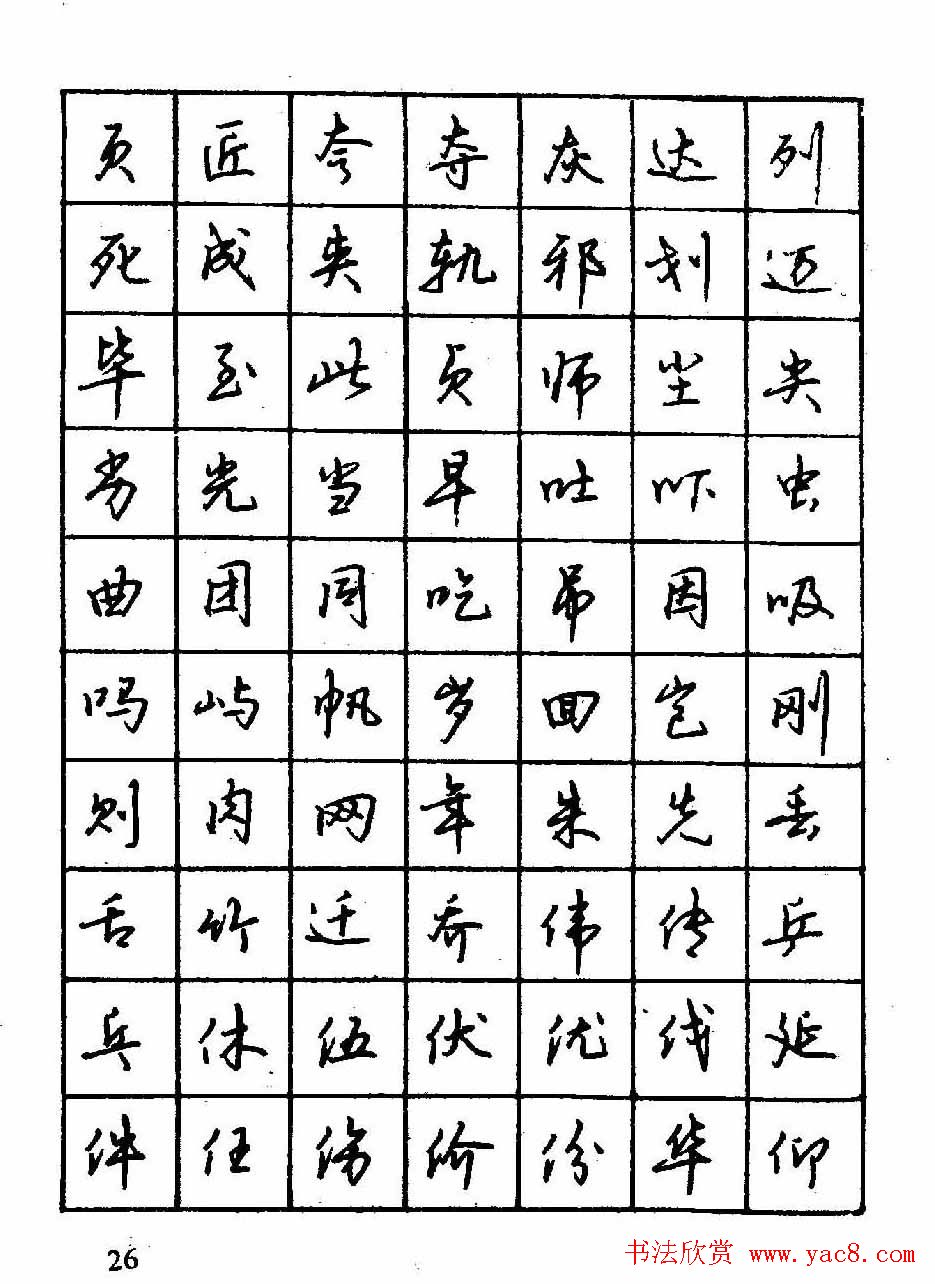 页 匠 夸 夺 灰 达 列
死 成 夹 轨 邪 划 迈
毕 至 此 贞 师 尘 尖
劣 光 当 早 吐 吓 虫
曲 团 同 吃 吊 因 吸
吗 屿 帆 岁 回 岂 刚
则 肉 网 年 朱 先 丢
舌 竹 迁 乔 伟 传 乒
乓 休 伍 伏 优 伐 延
件 任 伤 价 份 华 仰
26
书法欣赏 www.yac8.com